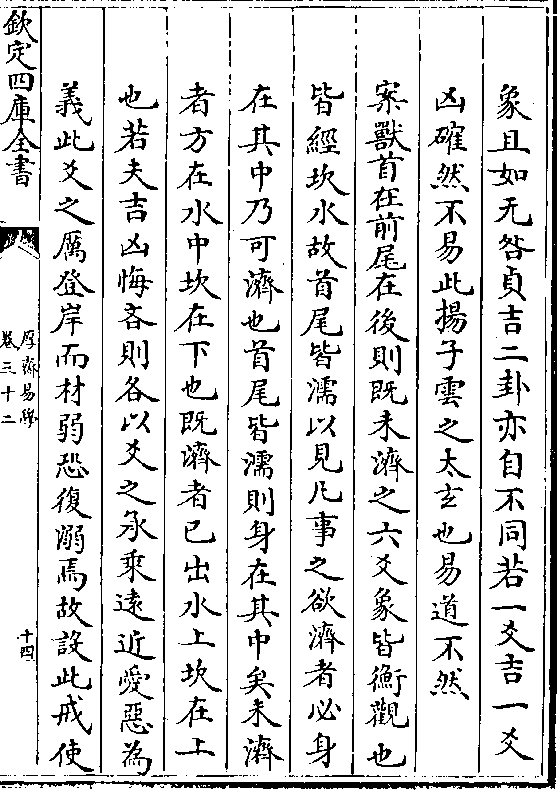 象且如无咎貞吉二卦亦自不同若一爻吉一爻
凶確然不易此揚子雲之太玄也易道不然
案獸首在前尾在後則既未濟之六爻象皆衡觀也
皆經坎水故首尾皆濡以見凡事之欲濟者必身
在其中乃可濟也首尾皆濡則身在其中矣未濟
者方在水中坎在下也既濟者已出水上坎在上
也若夫吉凶悔吝則各以爻之承乘遠近愛惡為
義此爻之厲登岸而材弱恐復溺焉故設此戒使
欽定四庫全書
厚齋易學
卷三十二
十四